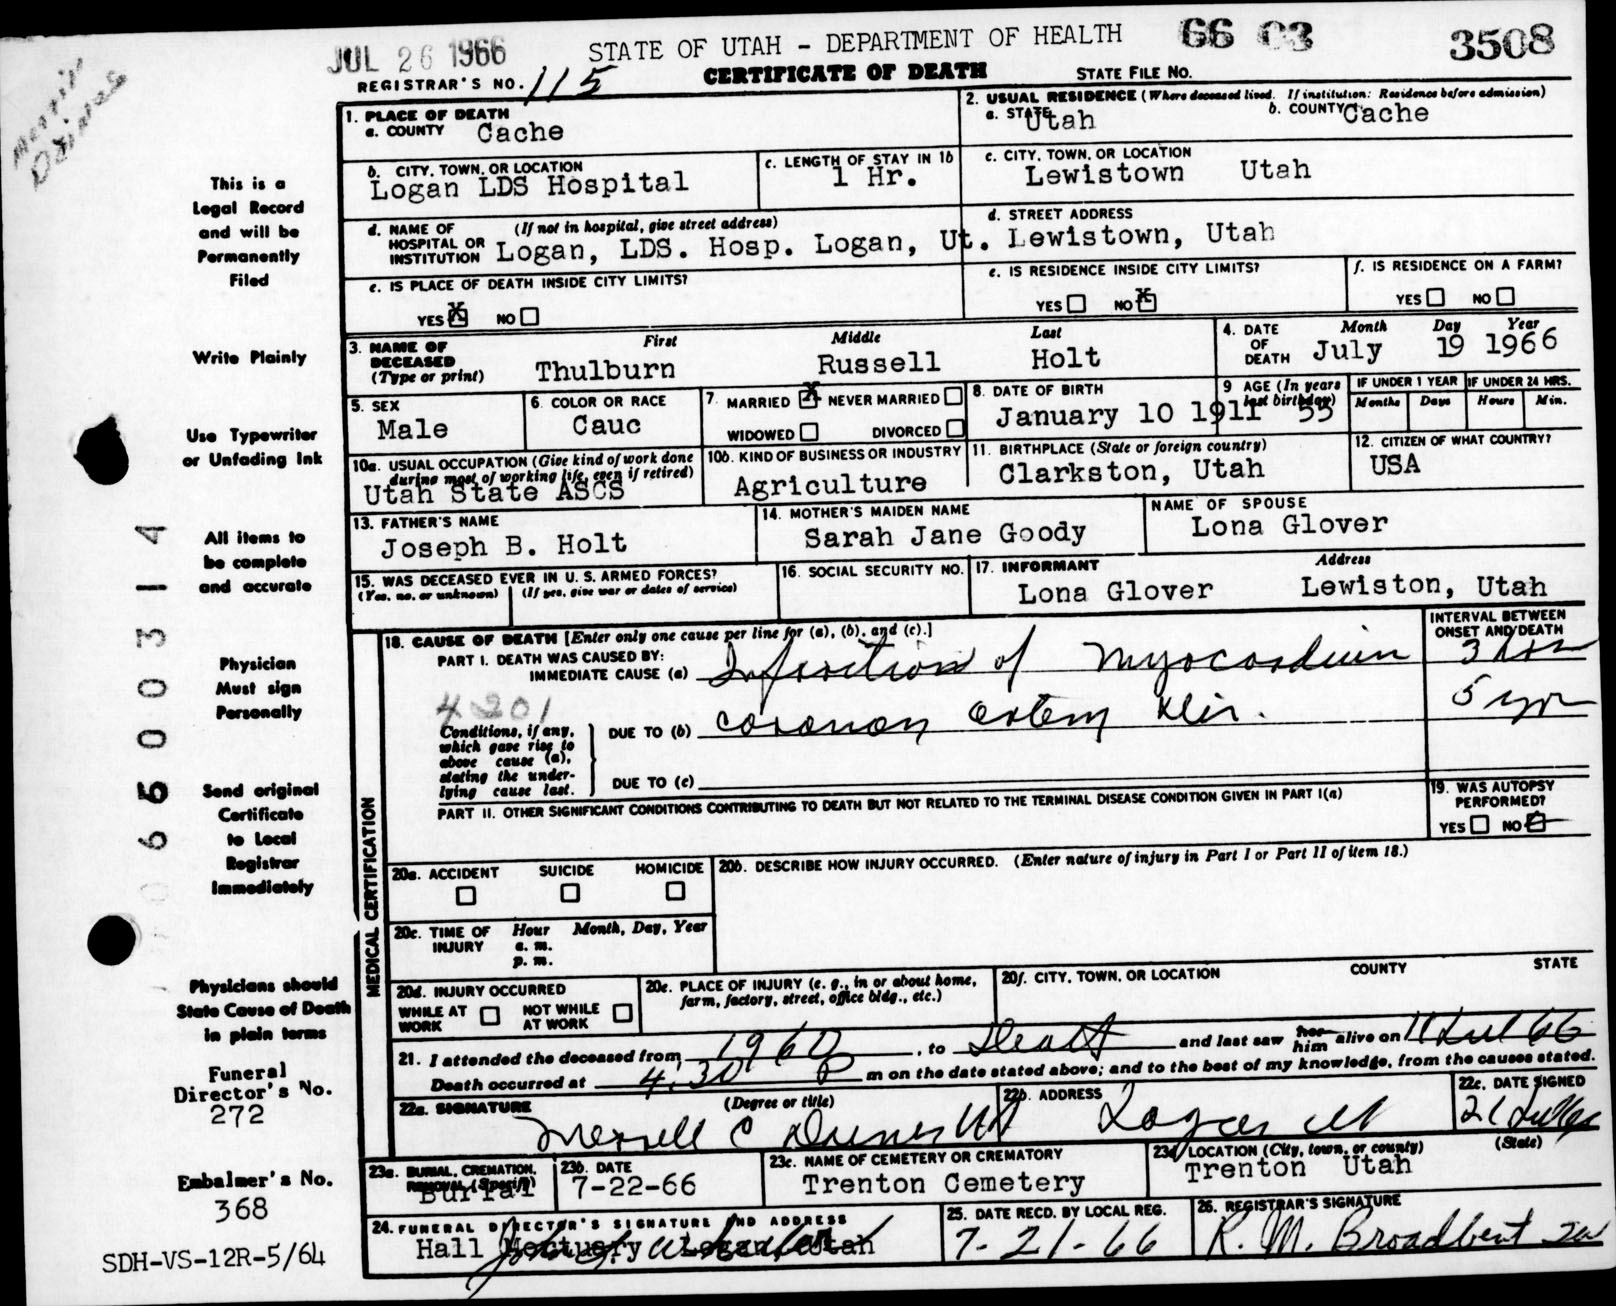 JUL 26 1966
STATE OF UTAH - DEPARTMENT OF HEALTH
66 03 3508
REGISTRAR'S NO. 115
CERTIFICATE OF DEATH
STATE FILE NO.
This is a
Legal Record
and will be
Permanently
Filed
Write Plainly
Use Typewriter
or Unfading Ink
All items to
be complete
and accurate
Physician
Must sign
Personally
Send original
Certificate
to Local
Registrar
Immediately
Physicians should
State Cause of Death
in plain terms
Funeral
Director's No.
272
Embalmer's No.
368
SDH-VS-12R-5/64
1. PLACE OF DEATH
a. COUNTY Cache
2. USUAL RESIDENCE (Where deceased lived. If institution: Residence before admission)
a. STATE Utah b. COUNTY Cache
b. CITY, TOWN, OR LOCATION
Logan LDS Hospital
c. LENGTH OF STAY IN 1b
1 Hr.
c. CITY, TOWN, OR LOCATION
Lewistown Utah
d. NAME OF HOSPITAL OR INSTITUTION (If not in hospital, give street address)
Logan, LDS. Hosp. Logan, Ut.
d. STREET ADDRESS
Lewistown, Utah
e. IS PLACE OF DEATH INSIDE CITY LIMITS?
YES X NO
e. IS RESIDENCE INSIDE CITY LIMITS?
YES NO X
f. IS RESIDENCE ON A FARM?
YES NO
3. NAME OF DECEASED (Type or print)
First Middle Last
Thulburn Russell Holt
4. DATE OF DEATH Month Day Year
July 19 1966
5. SEX
Male
6. COLOR OR RACE
Cauc
7. MARRIED X NEVER MARRIED
WIDOWED DIVORCED
8. DATE OF BIRTH
January 10 1911
9 AGE (In years last birthday)
55
IF UNDER 1 YEAR IF UNDER 24 HRS.
Months Days Hours Min.
10a. USUAL OCCUPATION (Give kind of work done during most of working life, even if retired)
Utah State ASCS
10b. KIND OF BUSINESS OR INDUSTRY
Agriculture
11. BIRTHPLACE (State or foreign country)
Clarkston, Utah
12. CITIZEN OF WHAT COUNTRY?
USA
13. FATHER'S NAME
Joseph B. Holt
14. MOTHER'S MAIDEN NAME
Sarah Jane Goody
NAME OF SPOUSE
Lona Glover
15. WAS DECEASED EVER IN U. S. ARMED FORCES?
(Yes, no, or unknown) (If yes, give war or dates of service)
16. SOCIAL SECURITY NO.
17. INFORMANT Address
Lona Glover Lewiston, Utah
MEDICAL CERTIFICATION
18. CAUSE OF DEATH [Enter only one cause per line for (a), (b), and (c).]
INTERVAL BETWEEN ONSET AND DEATH
PART I. DEATH WAS CAUSED BY:
IMMEDIATE CAUSE (a) Infarction of Myocardium 3 hrs
4201
Conditions, if any, which gave rise to above cause (a), stating the underlying cause last.
DUE TO (b) coronary artery 5 yr
DUE TO (c)
PART II. OTHER SIGNIFICANT CONDITIONS CONTRIBUTING TO DEATH BUT NOT RELATED TO THE TERMINAL DISEASE CONDITION GIVEN IN PART I(a)
19. WAS AUTOPSY PERFORMED?
YES NO
20a. ACCIDENT SUICIDE HOMICIDE
20b. DESCRIBE HOW INJURY OCCURRED. (Enter nature of injury in Part I or Part II of item 18.)
20c. TIME OF INJURY Hour a. m. p. m. Month, Day, Year
20d. INJURY OCCURRED
WHILE AT WORK NOT WHILE AT WORK
20e. PLACE OF INJURY (e. g., in or about home, farm, factory, street, office bldg., etc.)
20f. CITY, TOWN, OR LOCATION COUNTY STATE
21. I attended the deceased from 1960, to Death and last saw her him alive on 11 Jul 66
Death occurred at 4:30 P m on the date stated above; and to the best of my knowledge, from the causes stated.
22a. SIGNATURE (Degree or title)
Merrill C Daines MD
22b. ADDRESS
Logan Ut
22c. DATE SIGNED
21 Jul 66
23a. BURIAL, CREMATION, REMOVAL (Specify)
Burial
23b. DATE
7-22-66
23c. NAME OF CEMETERY OR CREMATORY
Trenton Cemetery
23d. LOCATION (City, town, or county) (State)
Trenton Utah
24. FUNERAL DIRECTOR'S SIGNATURE AND ADDRESS
Hall Mortuary Logan, Utah
25. DATE RECD. BY LOCAL REG.
7-21-66
26. REGISTRAR'S SIGNATURE
R. M. Broadbent